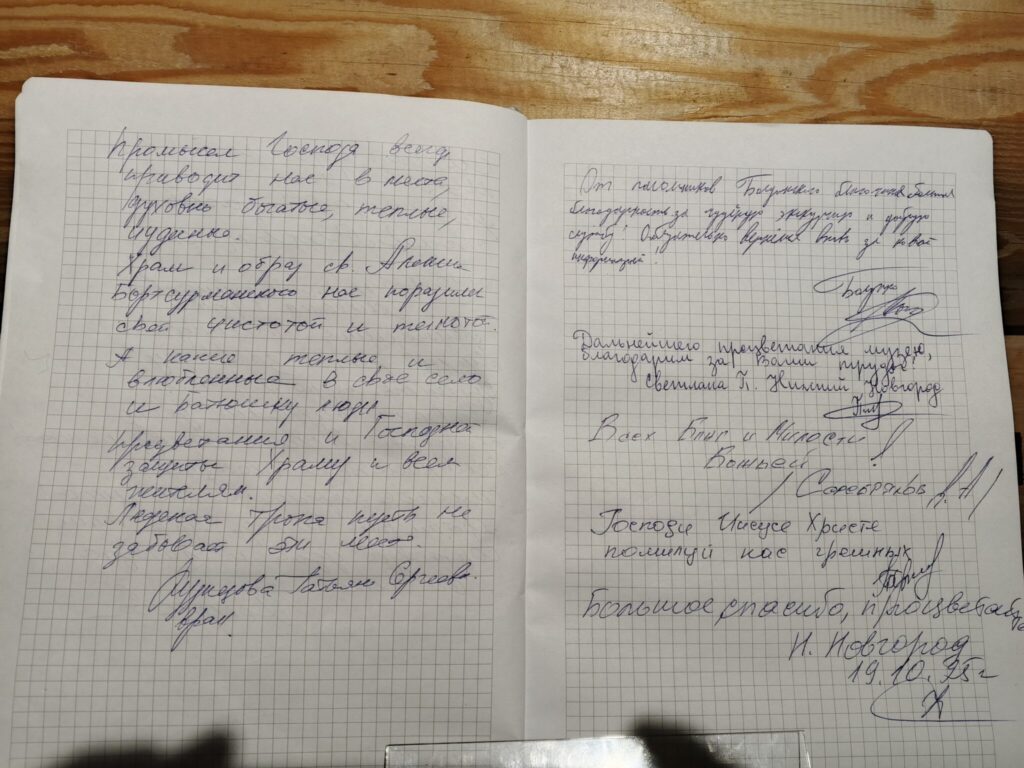 Промысел Господа всегд
приводит нас в места,
духовно богатые, теплые,
чудные.
Храм и образ св. Алексия
Бортсурманского нас поразили
свой чистотой и теплотой.
А какие теплые и
влюбленные в свое село
и батюшку люди
Процветания и Господней
защиты Храму и всем
жителям.
Людская тропа пусть не
забывает эти места.
Татьяна Сергеевн.
Врач.
От паломников благочиния большая
благодарность за чудную экскурсию и добрую
службу! Обязательно вернёмся к вам за новой
информацией.
Дальнейшего процветания музею,
благодарим за Ваши труды!
Светлана П. Нижний Новгород
Всех Благ и Милости
Божьей!
Господи Иисусе Христе
помилуй нас грешных
Большое спасибо, процветайте
Н. Новгород
19.10.25г